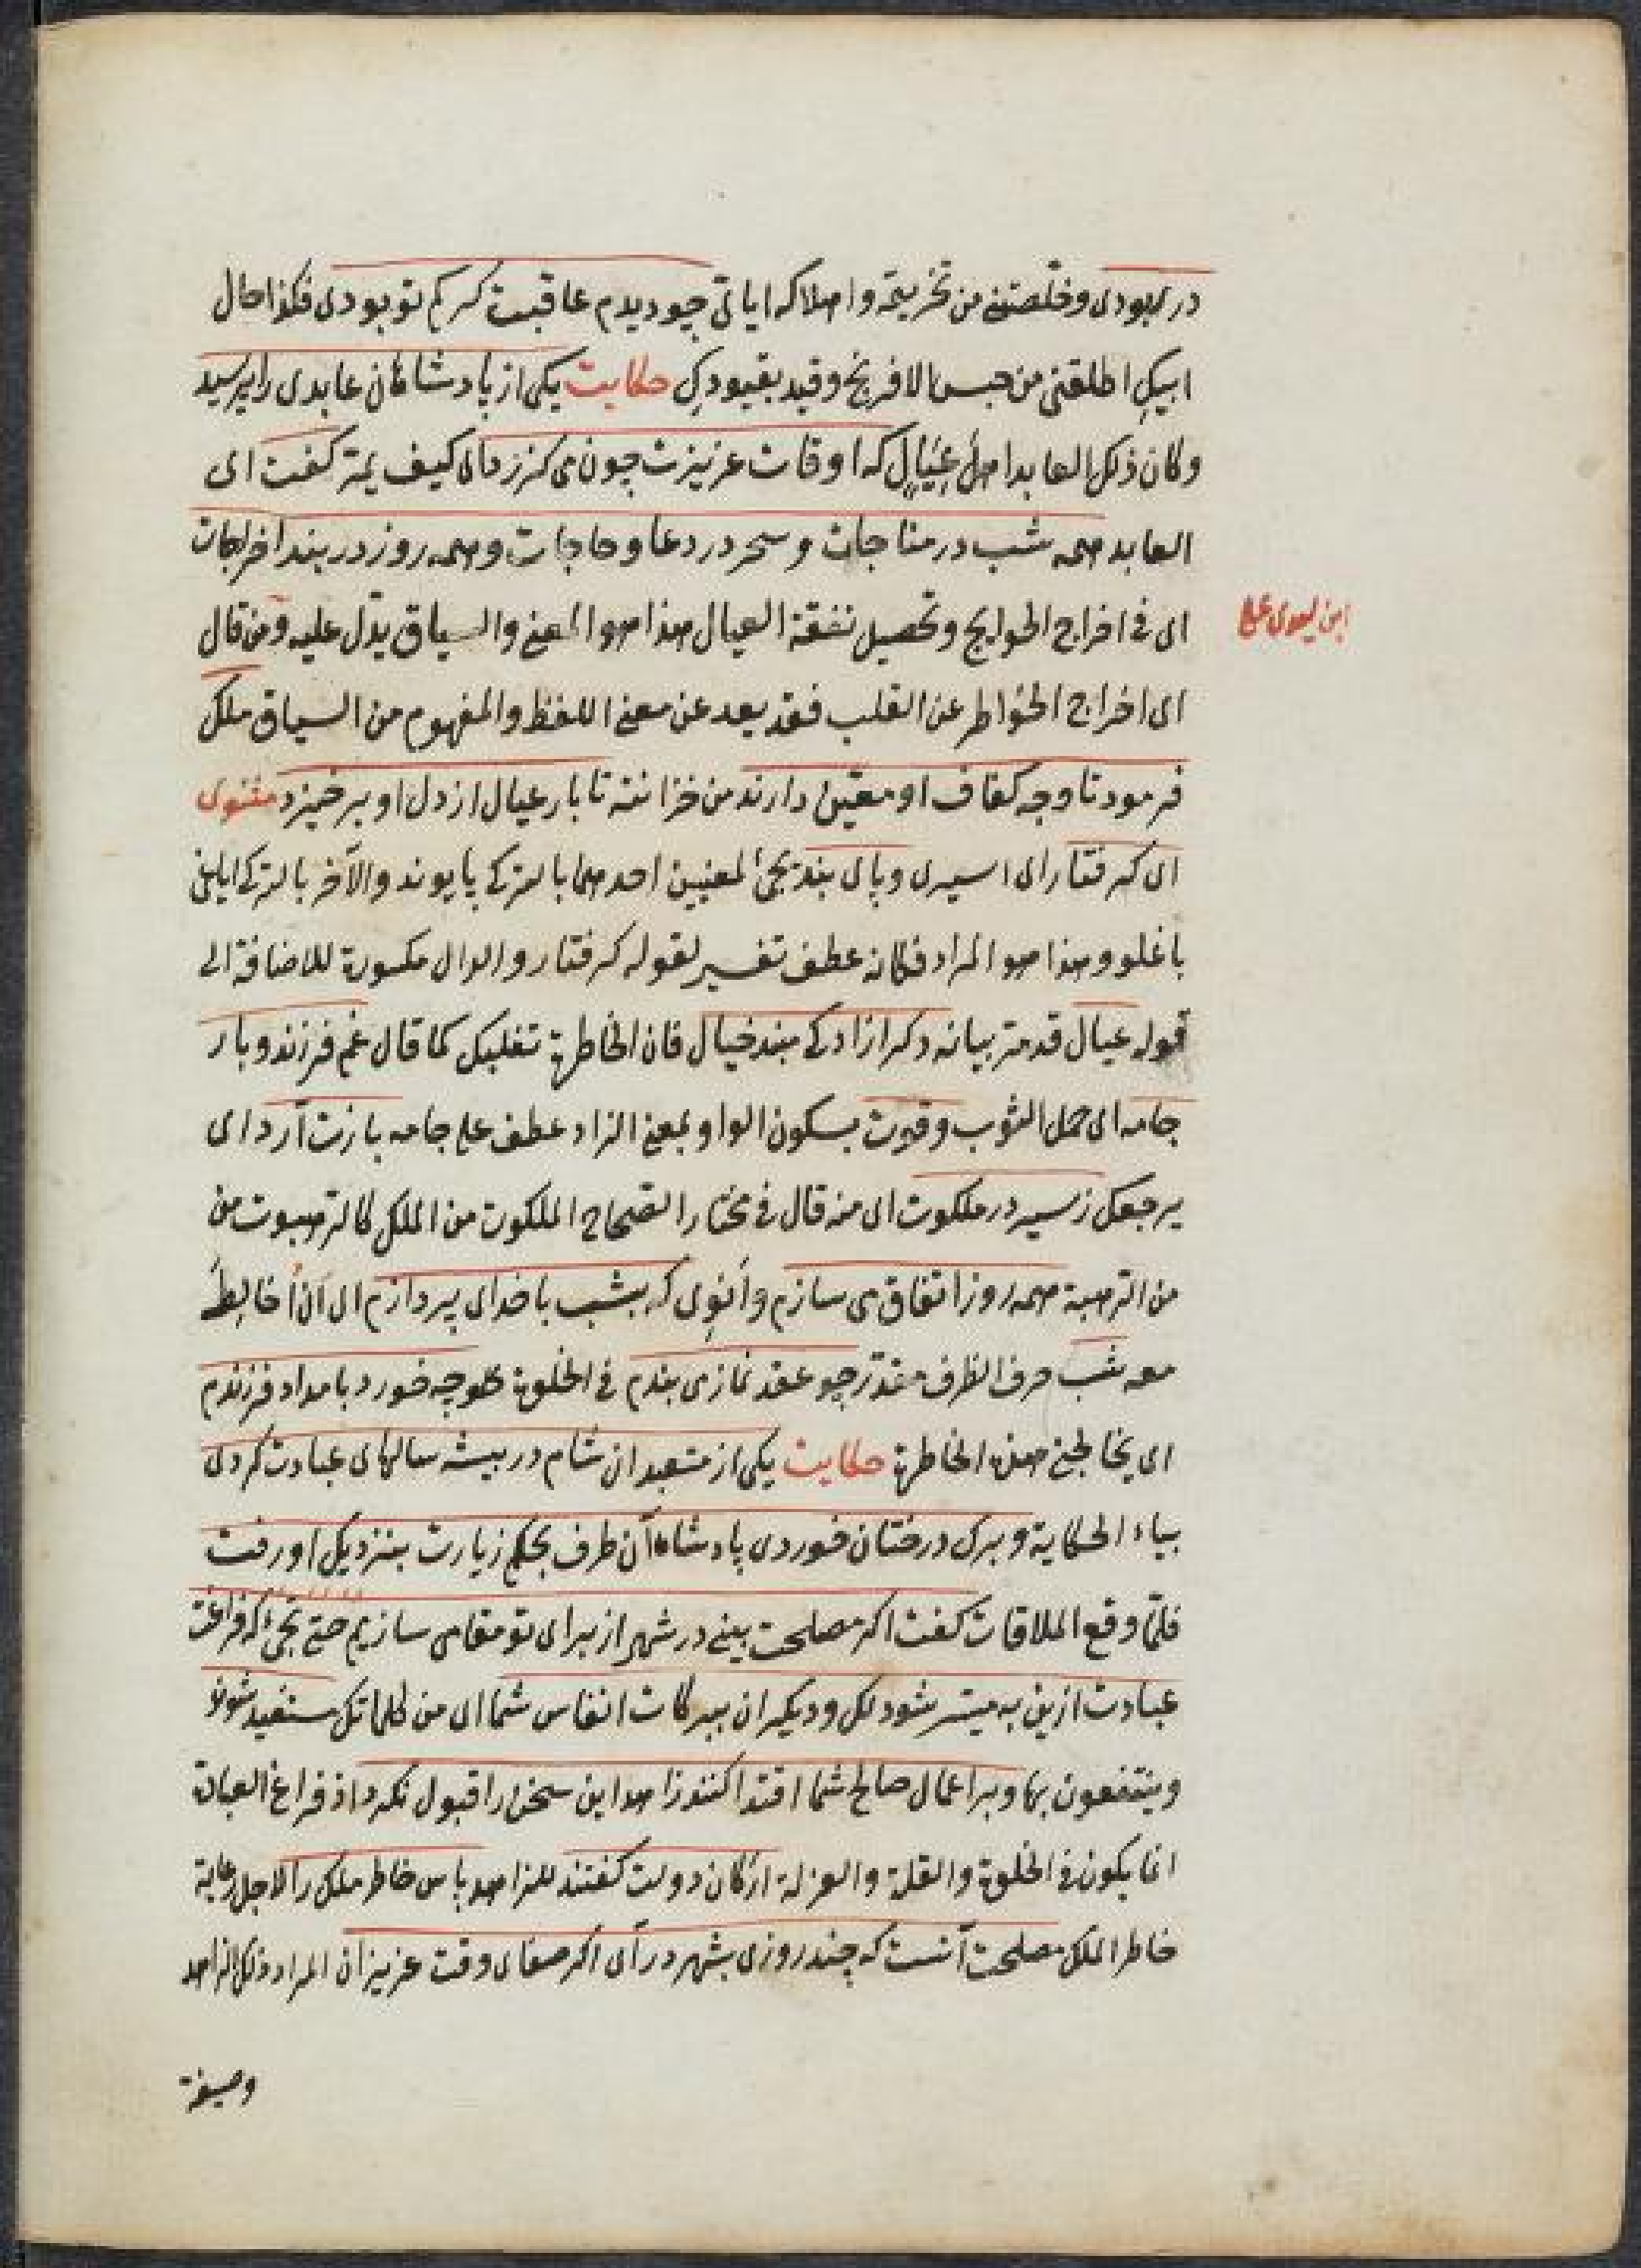 در ربودی وخلّصتنی من تخریبه واهلاکه ایاتی چو دیدم عاقبت کرکم تو بودی فکذا حال
ابیکِ اطلقنی من حبس الافرنج وقید بقیودکِ حکایت یکی از پادشاهان عابدی را پرسید
وکان ذلک العابد اهلُ عِیَالٍ که اوقات عزیزت چون می کزرد ای کیف یمرّ کفت ای
العابد همه شب در مناجات و سحر در دعا و حاجات و همه روز در بند اخراجات
ای فی اخراج الحوایج وتحصیل نفقة العیال هذا هو المعنی والسیاق یدّل علیه ومن قال
ابن لیعوی علی
ای اخراج الخواطر عن القلب فقد بعد عن معنی اللفظ والمفهوم من السیاق ملک
فرمود تا وجه کفاف او معیّن دارند من خزانته تا بار عیال از دل او برخیزد مثنوی
ای کرفتار ای اسیری وپای بند یجئ لمعنیین احدهما بالترکی پایوند والآخر بالترکی ایاغی
باغلو وهذا هو المراد فکانه عطف تفسیر لقوله کرفتار والدال مکسورة للاضافة الی
قوله عیال قد مرّ بیانه دکر ازادکی مبند خیال فان الخاطرة تغلبک کما قال غم فرزند وبار
جامه ای حمل الثوب وقوت بسکون الواو بمعنی الزاد عطف علی جامه بازت آرد ای
یرجعک ز سیر در ملکوت ای منه قال فی مختار الصّحاح الملکوت من الملک کالرّهبوت من
من الرّهبة همه روز اتفاق می سازم وأنوی که بشب باخدای پردازم ای اَنْ اُخَالِطَ
معه شب حرف الظرف مقدّر چو عقد نماز می بندم فی الخلوة چه خورد بامداد فرزندم
ای یخالجنی هذه الخاطرة حکایت یکی از متعبدان شام در بیشه سالهای عبادت کردی
بیاء الحکایة وبرک درختان خوردی پادشاه آن طرف بحکم زیارت بنزدیک او رفت
فلمّا وقع الملاقات کفت اکر مصلحت بینی در شهر از برای تو مقامی سازیم حتی یجئ که فراغت
عبادت ازین به میسّر شود لک ودیکران ببرکات انفاس شما ای من کلماتک مستفید شوند
وینتفعون بها وبراعمال صالح شما اقتدا کنند زاهد این سخن را قبول نکرد اذ فراغ العبادة
انما یکون فی الخلوة والقلة والعزلة ارکان دولت کفتند للزاهد پاس خاطر ملک را لاجل رعایة
خاطر الملک مصلحت آنست که چند روزی بشهر درآی اکر صفای وقت عزیزان المراد ذلک الزاهد
وصیغة